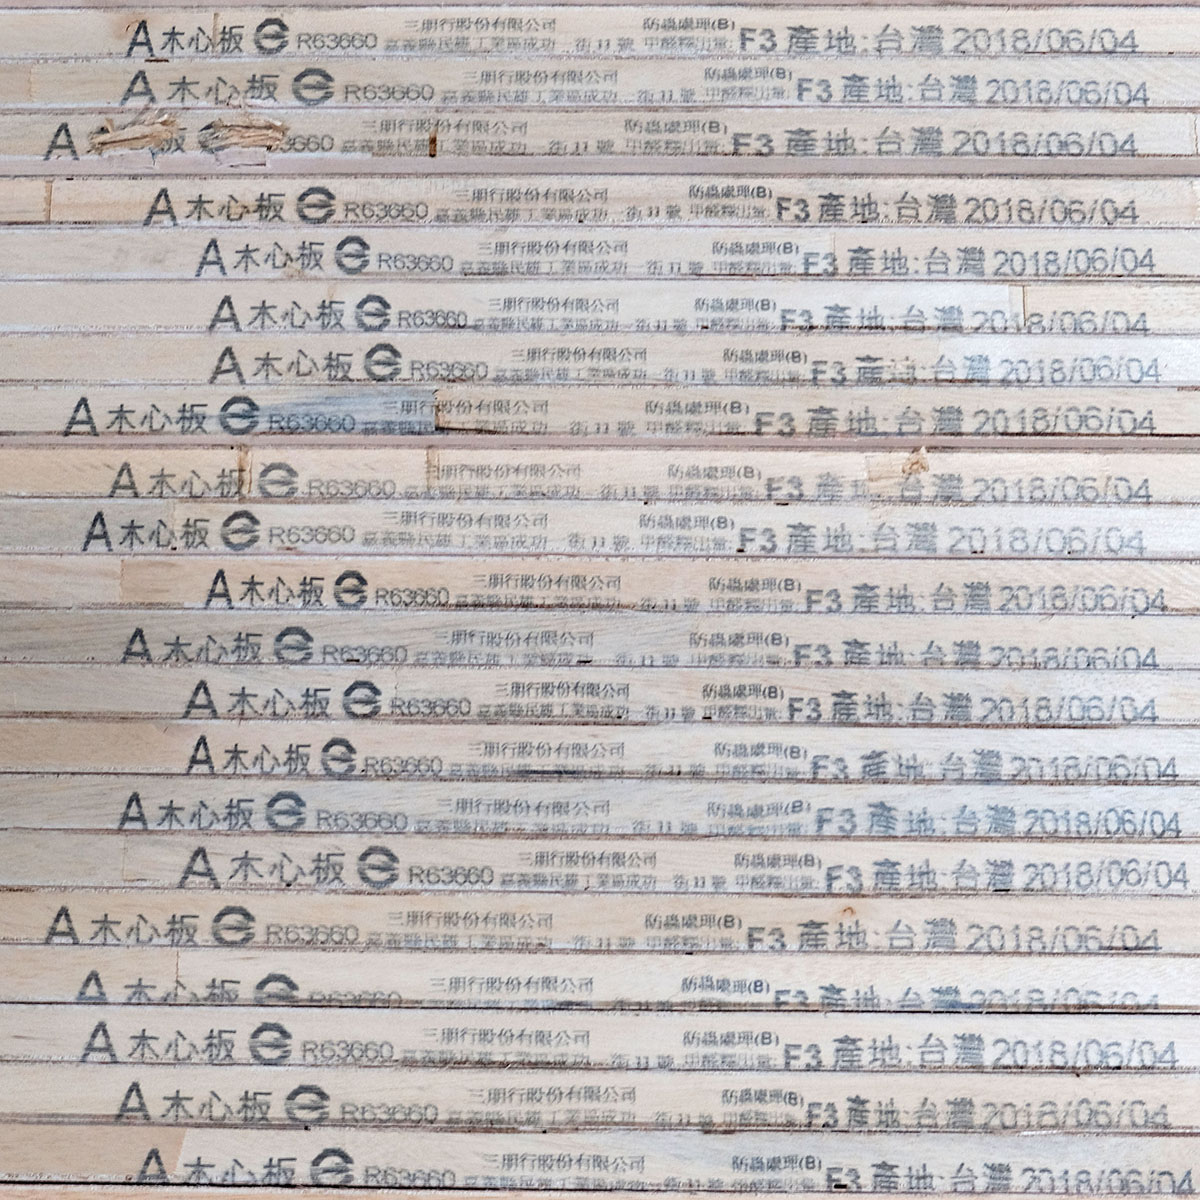 A 木心板 R63660 三朋行股份有限公司 嘉義縣民雄工業區成功一街11號 防蟲處理(B) 甲醛釋出量: F3 產地:台灣 2018/06/04
A 木心板 R63660 三朋行股份有限公司 嘉義縣民雄工業區成功一街11號 防蟲處理(B) 甲醛釋出量: F3 產地:台灣 2018/06/04
A 板 3660 三朋行股份有限公司 嘉義縣民雄工業區成功一街11號 防蟲處理(B) 甲醛釋出量: F3 產地:台灣 2018/06/04
A 木心板 R63660 三朋行股份有限公司 嘉義縣民雄工業區成功一街11號 防蟲處理(B) 甲醛釋出量: F3 產地:台灣 2018/06/04
A 木心板 R63660 三朋行股份有限公司 嘉義縣民雄工業區成功一街11號 防蟲處理(B) 甲醛釋出量: F3 產地:台灣 2018/06/04
A 木心板 R63660 三朋行股份有限公司 嘉義縣民雄工業區成功一街11號 防蟲處理(B) 甲醛釋出量: F3 產地:台灣 2018/06/04
A 木心板 R63660 三朋行股份有限公司 嘉義縣民雄工業區成功一街11號 防蟲處理(B) 甲醛釋出量: F3 產地:台灣 2018/06/04
A 木心板 R63660 三朋行股份有限公司 嘉義縣民雄工業區成功一街11號 防蟲處理(B) 甲醛釋出量: F3 產地:台灣 2018/06/04
A 木心板 R63660 三朋行股份有限公司 嘉義縣民雄工業區成功一街11號 防蟲處理(B) 甲醛釋出量: F3 產地:台灣 2018/06/04
A 木心板 R63660 三朋行股份有限公司 嘉義縣民雄工業區成功一街11號 防蟲處理(B) 甲醛釋出量: F3 產地:台灣 2018/06/04
A 木心板 R63660 三朋行股份有限公司 嘉義縣民雄工業區成功一街11號 防蟲處理(B) 甲醛釋出量: F3 產地:台灣 2018/06/04
A 木心板 R63660 三朋行股份有限公司 嘉義縣民雄工業區成功一街11號 防蟲處理(B) 甲醛釋出量: F3 產地:台灣 2018/06/04
A 木心板 R63660 三朋行股份有限公司 嘉義縣民雄工業區成功一街11號 防蟲處理(B) 甲醛釋出量: F3 產地:台灣 2018/06/04
A 木心板 R63660 三朋行股份有限公司 嘉義縣民雄工業區成功一街11號 防蟲處理(B) 甲醛釋出量: F3 產地:台灣 2018/06/04
A 木心板 R63660 三朋行股份有限公司 嘉義縣民雄工業區成功一街11號 防蟲處理(B) 甲醛釋出量: F3 產地:台灣 2018/06/04
A 木心板 R63660 三朋行股份有限公司 嘉義縣民雄工業區成功一街11號 防蟲處理(B) 甲醛釋出量: F3 產地:台灣 2018/06/04
A 木心板 R63660 三朋行股份有限公司 嘉義縣民雄工業區成功一街11號 防蟲處理(B) 甲醛釋出量: F3 產地:台灣 2018/06/04
A 木心板 R63660 三朋行股份有限公司 防蟲處理(B) F3 產地:台灣 2018/06/04
A 木心板 R63660 三朋行股份有限公司 嘉義縣民雄工業區成功一街11號 防蟲處理(B) 甲醛釋出量: F3 產地:台灣 2018/06/04
A 木心板 R63660 三朋行股份有限公司 嘉義縣民雄工業區成功一街11號 防蟲處理(B) 甲醛釋出量: F3 產地:台灣 2018/06/04
A 木心板 R63660 三朋行股份有限公司 防蟲處理(B) F3 產地:台灣 2018/06/04